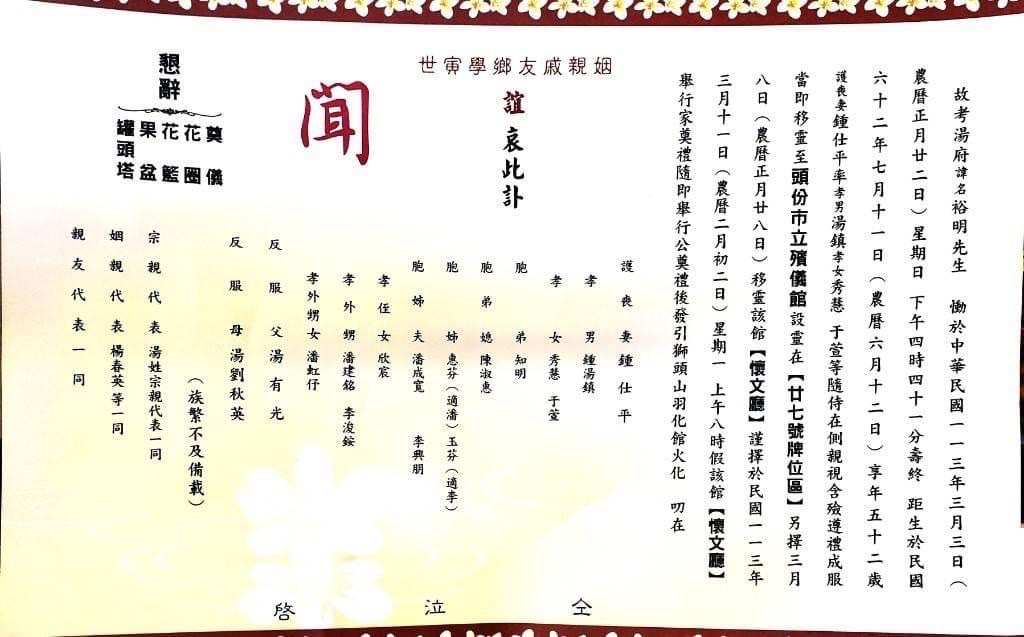 故考湯府諱名裕明先生 慟於中華民國一一三年三月三日（
農曆正月廿二日）星期日 下午四時四十一分壽終 距生於民國
六十二年七月十一日（農曆六月十二日）享年五十二歲
護喪妻鍾仕平率孝男湯鎮孝女秀慧 于萱等隨侍在側親視含殮遵禮成服
當即移靈至頭份市立殯儀館設靈在【廿七號牌位區】另擇三月
八日（農曆正月廿八日）移靈該館【懷文廳】謹擇於民國一一三年
三月十一日（農曆二月初二日）星期一 上午八時假該館【懷文廳】
舉行家奠禮隨即舉行公奠禮後發引獅頭山羽化館火化 叨在
姻親戚友鄉學寅世
誼 哀此訃
聞
懇辭
奠儀
花圈
花籃
果盆
罐頭塔
護喪妻 鍾仕平
孝男 鍾湯鎮
孝女 秀慧 于萱
胞弟 知明
胞弟媳 陳淑惠
胞姊 惠芬（適潘）玉芬（適李）
胞姊夫 潘成寬 李興朋
孝侄女 欣宸
孝外甥 潘建銘 李浚銨
孝外甥女 潘虹伃
反服父 湯有光
反服母 湯劉秋英
（族繁不及備載）
宗親代表 湯姓宗親代表一同
姻親代表 楊春英等一同
親友代表一同
仝 泣 啓